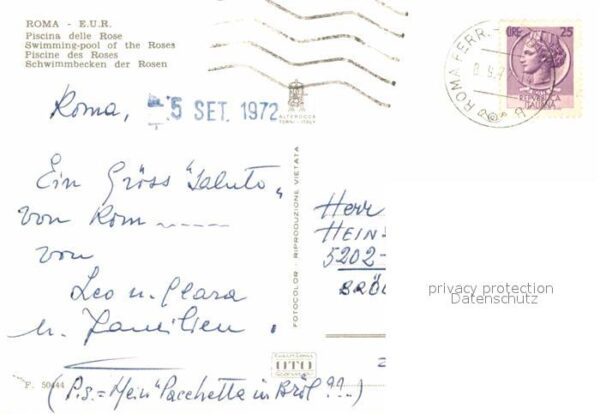 ROMA - E.U.R.
Piscina delle Rose
Swimming-pool of the Roses
Piscine des Roses
Schwimmbecken der Rosen
ALTEROCCA
TERNI - ITALY
ROMA FERR.
LIRE 25
REPUBBLICA
ITALIANA
Roma, 5 SET. 1972
Ein Gröss "Saluto"
von Rom
von
Leo u. Clara
u. Familien.
(P.s. = Mein "Pacchetta in Bröl?...)
FOTOCOLOR RIPRODUZIONE VIETATA
Herr
HEIN
5202-
BRÖL
privacy protection
Datenschutz
OTO
F. 50444